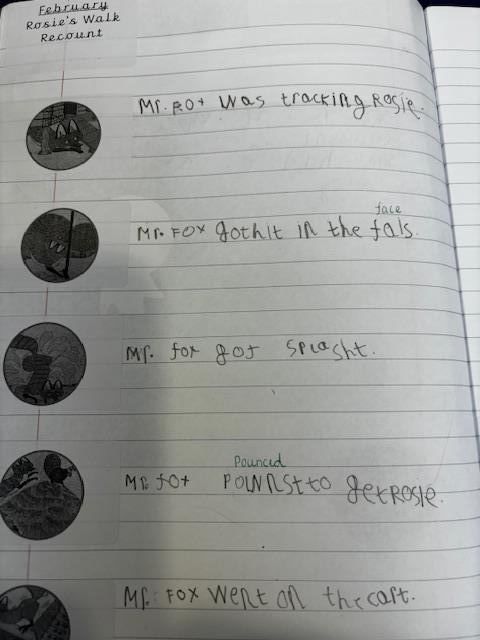 February
Rosie's Walk
Recount
Mr. Fox was tracking Rosie.
face
Mr. Fox got hit in the fais.
Mr. fox got splasht.
Pounced
Mr. fox pounst to get Rosie.
Mr. Fox went on the cart.